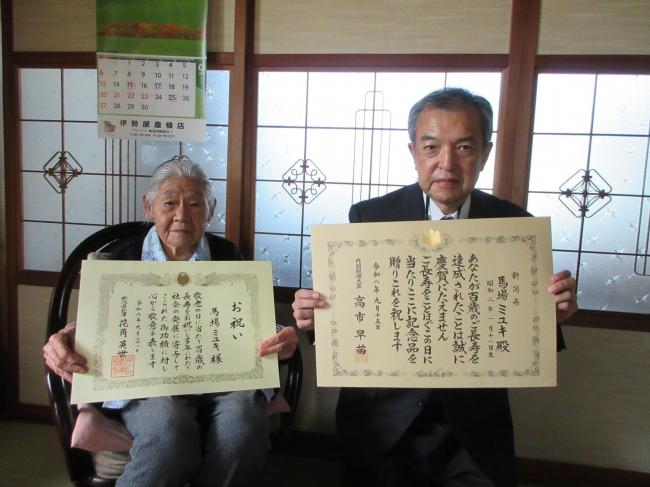 6 7 8 9 10 11 12
13 14 15 16 17 18 19
20 21 22 23 24 25 26
27 28 29 30
9
伊勢屋農機店
お祝い
馬場 ミユキ 様
敬老の日に当たり百歳の
長寿をお祝いし多年にわたり
社会の発展に寄与して
こられた御功績に対し
心から敬意を表します
令和八年九月
新潟県知事 花角 英世
新潟県
馬場 ミユキ 殿
昭和二年一月十一日生
あなたが百歳のご長寿を
達成されたことは誠に
慶賀にたえません
ご長寿をことほぐこの日に
当たりここに記念品を
贈りこれを祝します
令和八年九月十五日
内閣総理大臣 高市 早苗